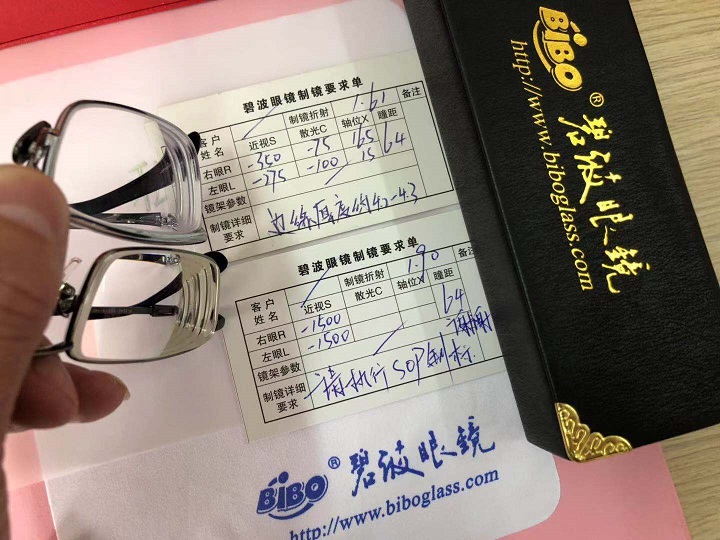 碧波眼镜制镜要求单
客户姓名
制镜折射
1.61
备注
近视S
散光C
轴位X
瞳距
右眼R
-350
-75
165
64
左眼L
-275
-100
15
镜架参数
制镜详细要求
边缘厚度约4.2-4.3
碧波眼镜制镜要求单
客户姓名
制镜折射
1.90
备注
近视S
散光C
轴位X
瞳距
右眼R
-1500
64
左眼L
-1500
谢谢
镜架参数
制镜详细要求
请执行SOP制标.
BIBO® 碧波眼镜
http://www.biboglass.com
BIBO® 碧波眼镜
http://www.biboglass.com